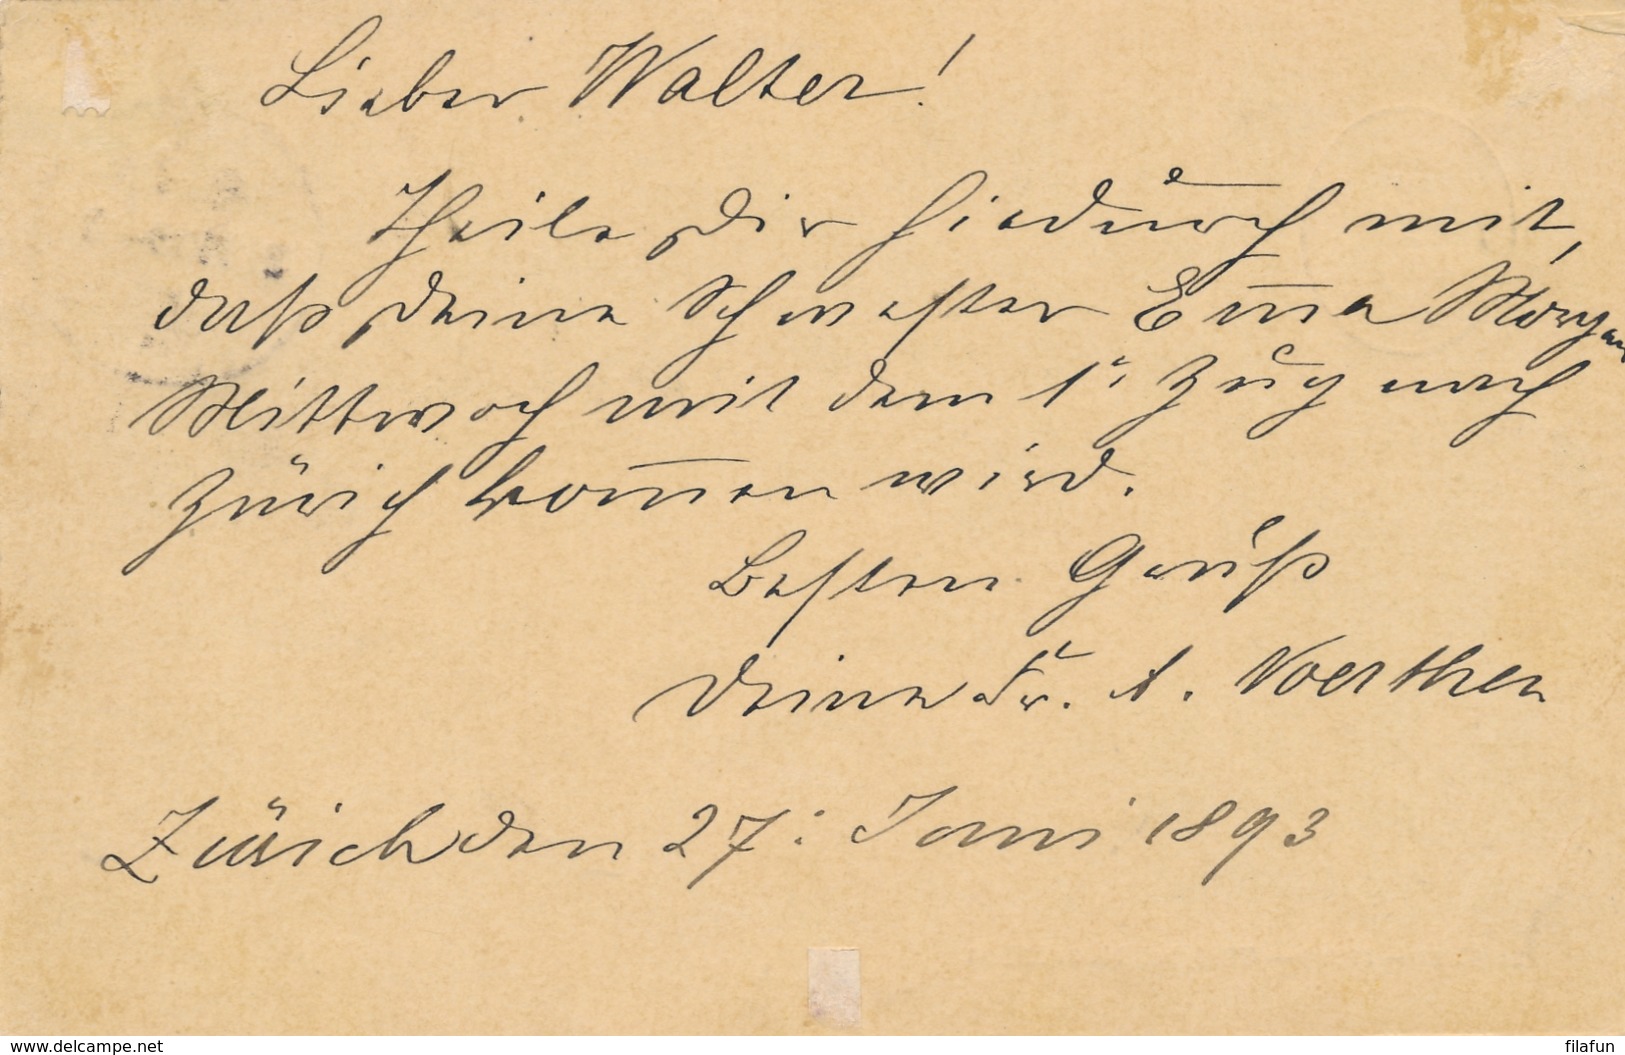 Lieber Walter!
Theile Dir hiedurch mit,
daß Deine Schwester Em̅a Morgen
Mittwoch mit dem 1. Zug nach
Zürich kom̅en wird.
Besten Gruß
Deine Fr. A. Noerthen
Zürich den 27. Juni 1893
www.delcampe.net
filafun